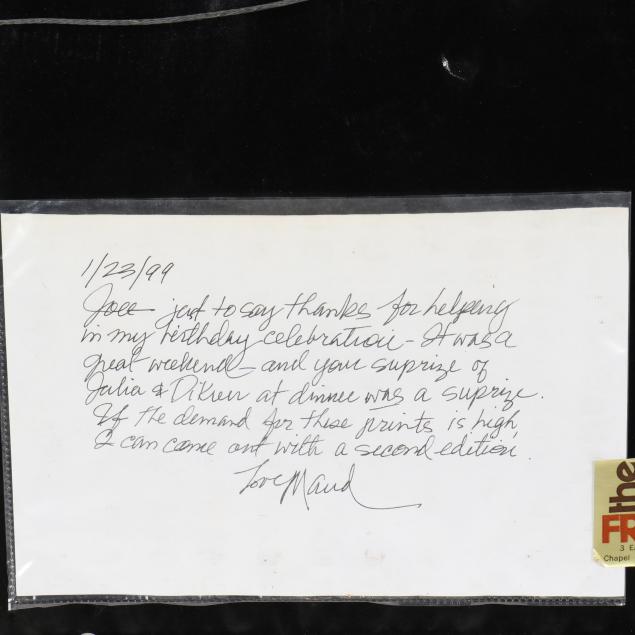 1/23/99
just to say thanks for helping
in my birthday celebration - It was a
great weekend - and your suprize of
Julia & at dinner was a suprize.
If the demand for these prints is high,
I can come out with a second edition.
Love Maud
the
FR
3 E
Chapel